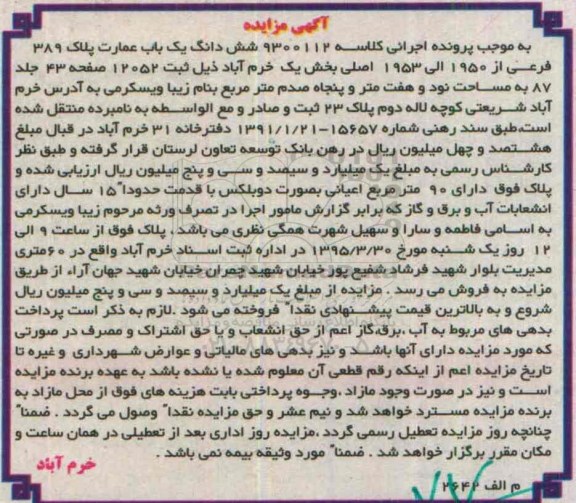 آگهی مزایده
به موجب پرونده اجرائی کلاسه ۹۳۰۰۱۱۲ شش دانگ یک باب عمارت پلاک ۳۸۹
فرعی از ۱۹۵۰ الی ۱۹۵۳ اصلی بخش یک خرم آباد ذیل ثبت ۱۲۰۵۲ صفحه ۴۳ جلد
۸۷ به مساحت نود و هفت متر و پنجاه صدم متر مربع بنام زیبا ویسکرمی به آدرس خرم
آباد شریعتی کوچه لاله دوم پلاک ۲۳ ثبت و صادر و مع الواسطه به نامبرده منتقل شده
است،طبق سند رهنی شماره ۱۵۶۵۷-۱۳۹۱/۱/۲۱ دفترخانه ۳۱ خرم آباد در قبال مبلغ
هشتصد و چهل میلیون ریال در رهن بانک توسعه تعاون لرستان قرار گرفته و طبق نظر
کارشناس رسمی به مبلغ یک میلیارد و سیصد و سی و پنج میلیون ریال ارزیابی شده و
پلاک فوق دارای ۹۰ متر مربع اعیانی بصورت دوبلکس با قدمت حدودا" ۱۵ سال دارای
انشعابات آب و برق و گاز که برابر گزارش مامور اجرا در تصرف ورثه مرحوم زیبا ویسکرمی
به اسامی فاطمه و سارا و سهیل شهرت همگی نظری می باشد . پلاک فوق از ساعت ۹ الی
۱۲ روز یک شنبه مورخ ۱۳۹۵/۳/۳۰ در اداره ثبت اسناد خرم آباد واقع در ۶۰متری
مدیریت بلوار شهید فرشاد شفیع پور خیابان شهید چمران خیابان شهید جهان آراء از طریق
مزایده به فروش می رسد . مزایده از مبلغ یک میلیارد و سیصد و سی و پنج میلیون ریال
شروع و به بالاترین قیمت پیشنهادی نقدا" فروخته می شود .لازم به ذکر است پرداخت
بدهی های مربوط به آب ،برق،گاز اعم از حق انشعاب و یا حق اشتراک و مصرف در صورتی
که مورد مزایده دارای آنها باشد و نیز بدهی های مالیاتی و عوارض شهرداری و غیره تا
تاریخ مزایده اعم از اینکه رقم قطعی آن معلوم شده یا نشده باشد به عهده برنده مزایده
است و نیز در صورت وجود مازاد ،وجوه پرداختی بابت هزینه های فوق از محل مازاد به
برنده مزایده مسترد خواهد شد و نیم عشر و حق مزایده نقدا" وصول می گردد . ضمنا"
چنانچه روز مزایده تعطیل رسمی گردد ،مزایده روز اداری بعد از تعطیلی در همان ساعت و
مکان مقرر برگزار خواهد شد . ضمنا" مورد وثیقه بیمه نمی باشد .
خرم آباد
م الف ۲۶۴۲